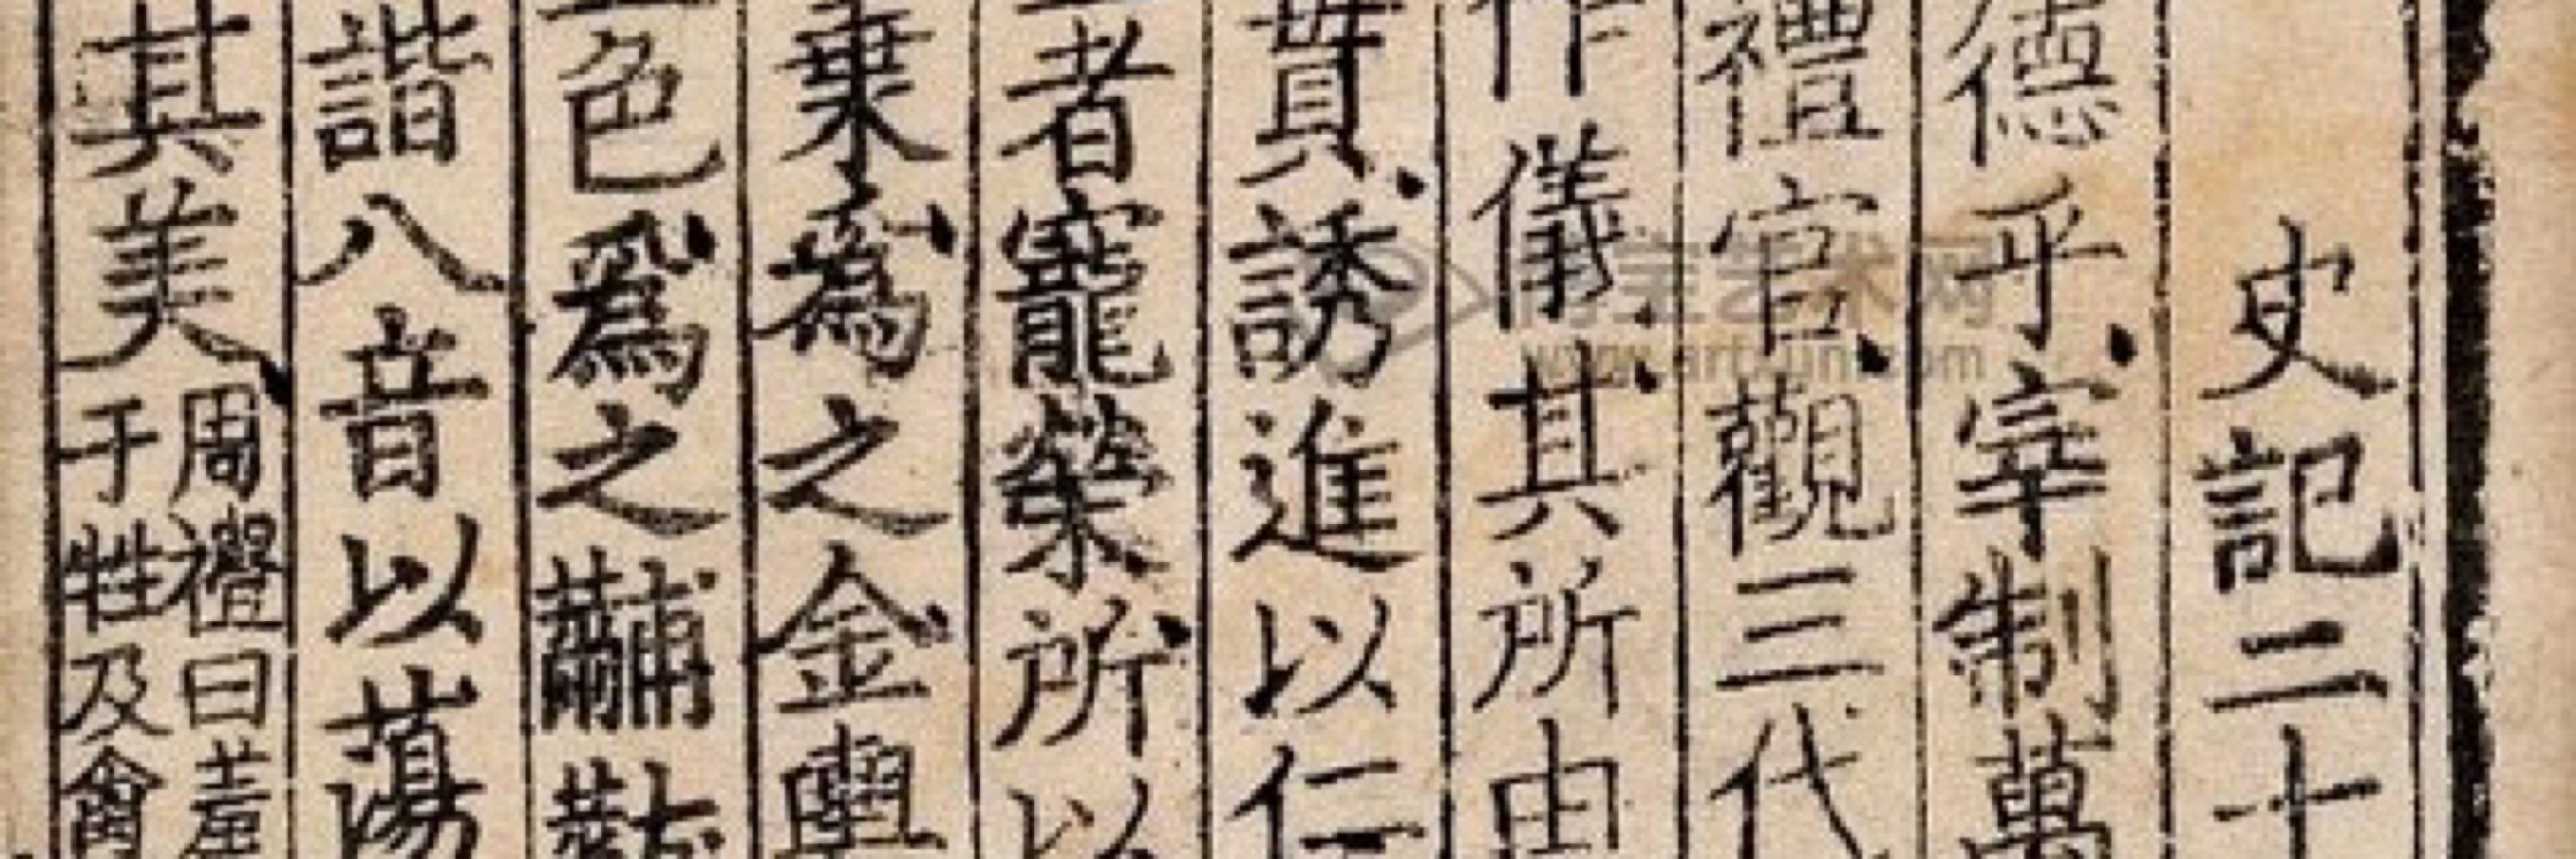 史記二十
德乎宰制萬
禮官觀三代
作儀其所由
貫誘進以仁
者寵榮所以
乗為之金輿
色爲之黼黻
諧八音以蕩
其美周禮曰羞
于牲及禽
宝艺术网
www.artxun.com